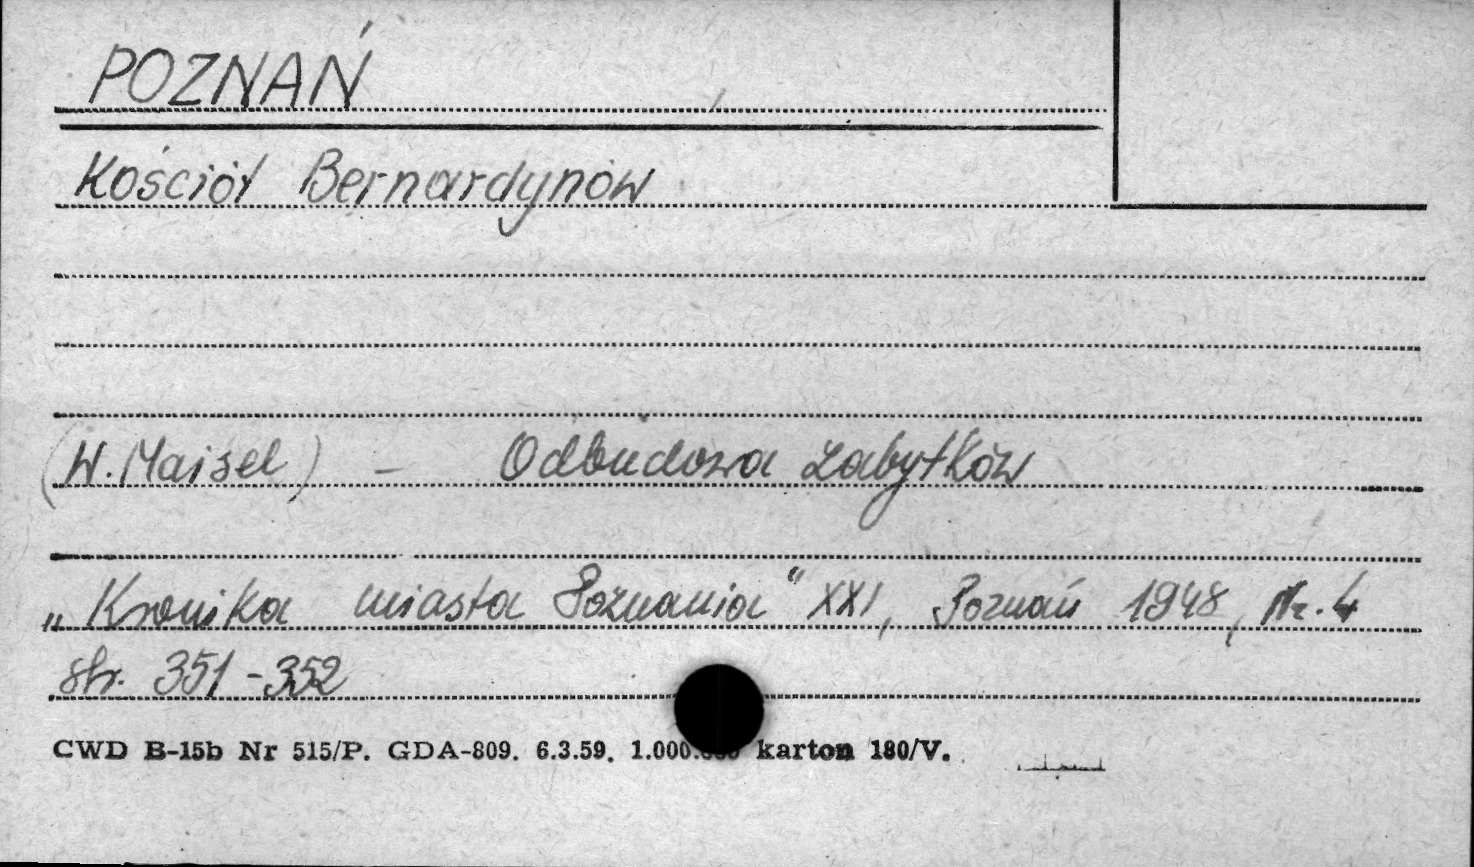 POZNAŃ
Kościół Bernardynów
(W. Maisel) - Odbudowa zabytków
„Kronika miasta Poznania" XXI, Poznań 1948, Nr. 4
str. 351-352
CWD B-15b Nr 515/P. GDA-809. 6.3.59. 1.000. karton 180/V.